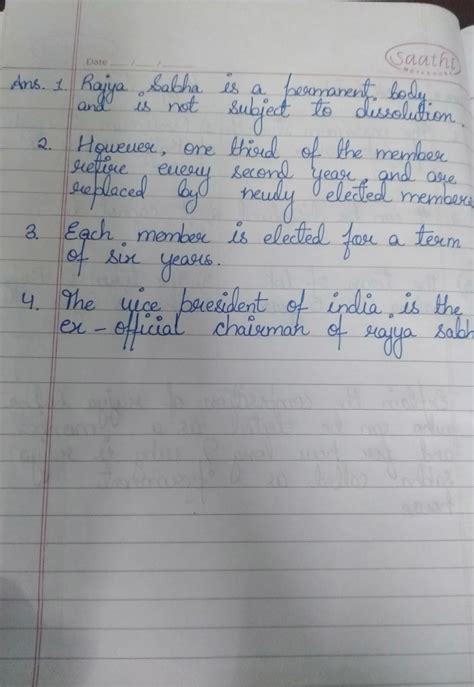 saathi
NOTEBOOKS
Date ...../...../.....
Ans. 1. Rajya Sabha is a permanent body
and is not subject to dissolution.
2. However, one third of the member
retire every second year, and are
replaced by newly elected members
3. Each member is elected for a term
of six years.
4. The vice president of india, is the
ex-official chairman of rajya sabh